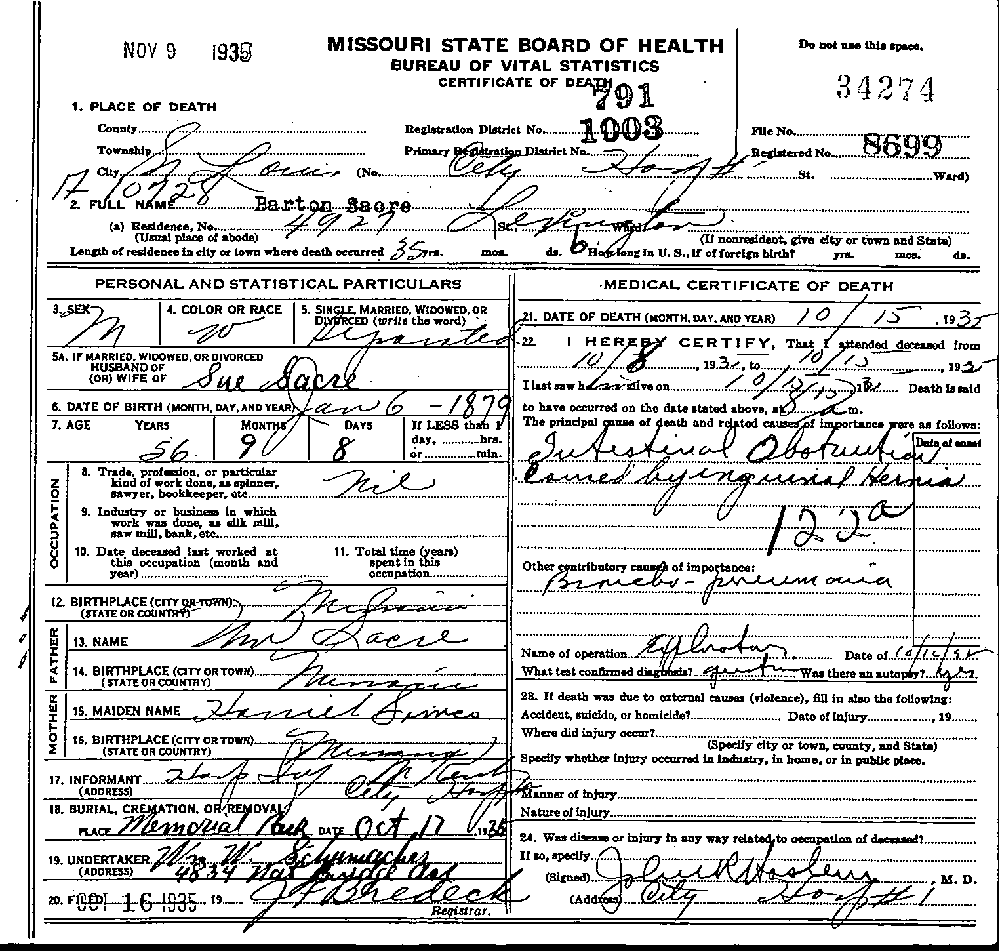 NOV 9 1935
MISSOURI STATE BOARD OF HEALTH
BUREAU OF VITAL STATISTICS
CERTIFICATE OF DEATH
Do not use this space.
34274
791
1003
1. PLACE OF DEATH
County
Registration District No.
File No.
Township
Primary Registration District No.
Registered No. 8699
City St Louis (No. City Hospt #1 St. Ward)
2. FULL NAME Barton Sacre
(a) Residence, No. 4927 Lexington St. Ward.
(Usual place of abode) (If nonresident, give city or town and State)
Length of residence in city or town where death occurred 35 yrs. mos. ds. How long in U. S., if of foreign birth? yrs. mos. ds.
PERSONAL AND STATISTICAL PARTICULARS
3. SEX M
4. COLOR OR RACE W
5. SINGLE, MARRIED, WIDOWED, OR DIVORCED (write the word) Separated
5A. IF MARRIED, WIDOWED, OR DIVORCED
HUSBAND OF
(OR) WIFE OF Sue Sacre
6. DATE OF BIRTH (MONTH, DAY, AND YEAR) Jan 6 - 1879
7. AGE YEARS MONTHS DAYS If LESS than 1 day, hrs. or min.
56 9 8
OCCUPATION
8. Trade, profession, or particular kind of work done, as spinner, sawyer, bookkeeper, etc. Nil
9. Industry or business in which work was done, as silk mill, saw mill, bank, etc.
10. Date deceased last worked at this occupation (month and year)
11. Total time (years) spent in this occupation
12. BIRTHPLACE (CITY OR TOWN)
(STATE OR COUNTRY)
FATHER
13. NAME Sacre
14. BIRTHPLACE (CITY OR TOWN)
(STATE OR COUNTRY)
MOTHER
15. MAIDEN NAME
16. BIRTHPLACE (CITY OR TOWN)
(STATE OR COUNTRY)
17. INFORMANT
(ADDRESS) City Hospt #1
18. BURIAL, CREMATION, OR REMOVAL
PLACE Memorial Park DATE Oct 17 1935
19. UNDERTAKER Wm W. Schumacher
(ADDRESS) 4834 Nat Bridge
20. FILED OCT 16 1935 19 J F Bredeck
Registrar.
MEDICAL CERTIFICATE OF DEATH
21. DATE OF DEATH (MONTH, DAY, AND YEAR) 10/15, 1935
22. I HEREBY CERTIFY, That I attended deceased from
10/8, 193 , to 10/15, 193
I last saw him alive on 10/15, 193 Death is said
to have occurred on the date stated above, at m.
The principal cause of death and related causes of importance were as follows:
Date of onset
Intestinal Obstruction
Caused by inguinal Hernia
122a
Other contributory causes of importance:
Broncho-pneumonia
Name of operation Date of
What test confirmed diagnosis? Was there an autopsy?
23. If death was due to external causes (violence), fill in also the following:
Accident, suicide, or homicide? Date of injury, 19
Where did injury occur?
(Specify city or town, county, and State)
Specify whether injury occurred in industry, in home, or in public place.
Manner of injury
Nature of injury
24. Was disease or injury in any way related to occupation of deceased?
If so, specify
(Signed) M. D.
(Address) City Hospt #1